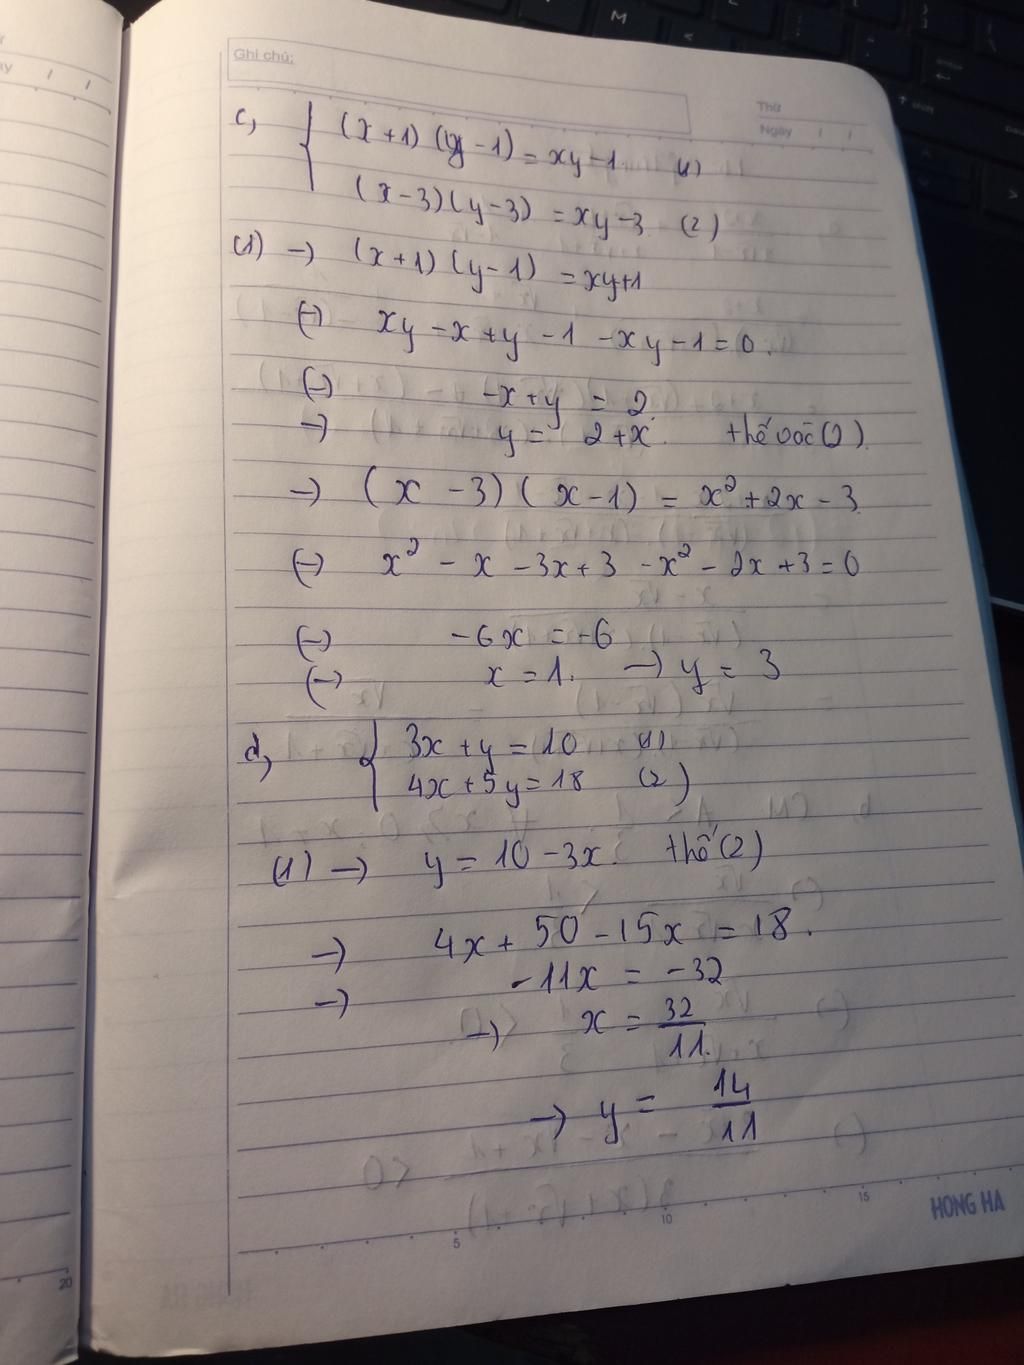 Ghi chú:
Thứ
Ngày / /
c, { (x+1)(y-1) = xy-1 (1)
(x-3)(y-3) = xy-3 (2)
(1) → (x+1)(y-1) = xy+1
(→) xy - x + y - 1 - xy - 1 = 0.
(→) -x+y = 2.
→ y = 2+x. thế vào (2).
→ (x-3)(x-1) = x² + 2x - 3
(→) x² - x - 3x + 3 - x² - 2x + 3 = 0
(→) -6x = -6
(→) x = 1. → y = 3
d, { 3x + y = 10 (1)
4x + 5y = 18 (2)
(1) → y = 10 - 3x. thế (2)
→ 4x + 50 - 15x = 18.
→ -11x = -32
→ x = 32/11.
→ y = 14/11
5 10 15
HONG HA
20